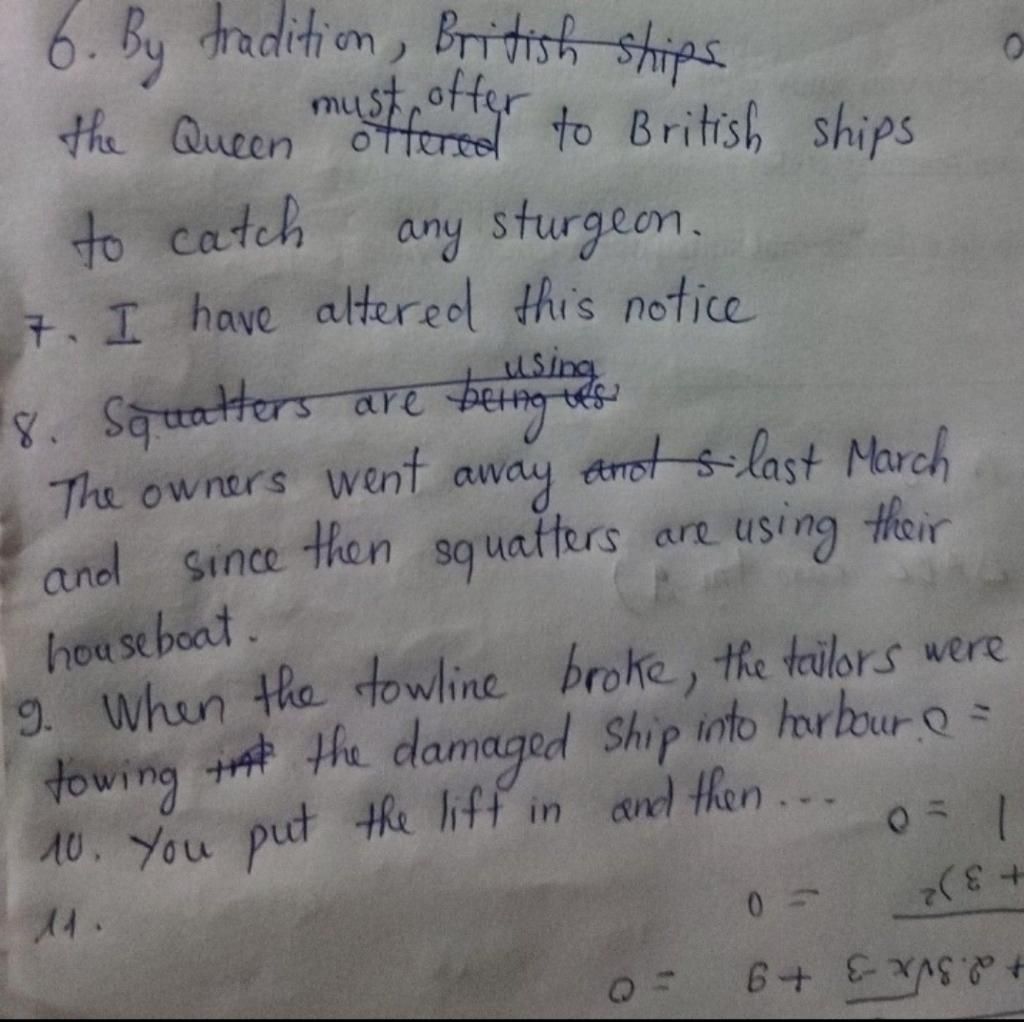 6. By tradition, British ships
must offer
the Queen offered to British ships
to catch any sturgeon.
7. I have altered this notice
using
8. Squatters are being
The owners went away and s last March
and since then squatters are using their
houseboat.
9. When the towline broke, the tailors were
towing the damaged ship into harbour. 0 =
10. You put the lift in and then ...
1 = 0
11.
+ 3)² = 0
+ 2.3√x-3 + 9 = 0